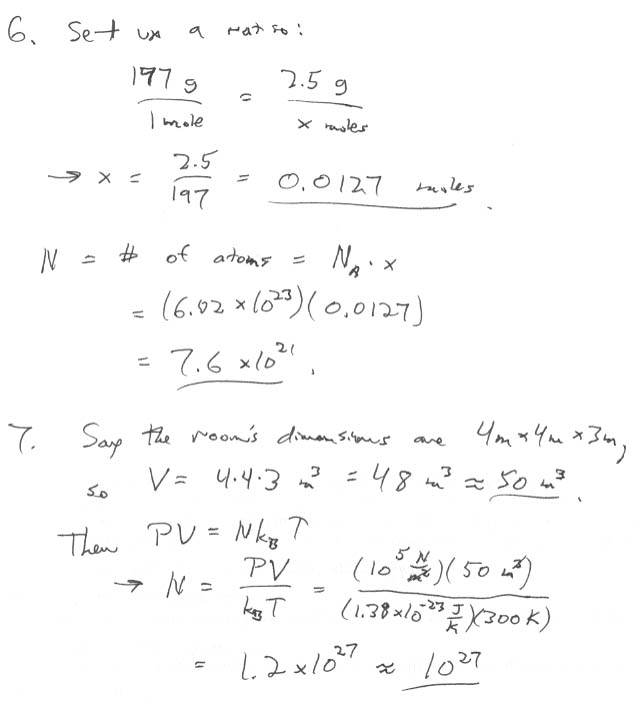 6. Set up a ratio:
197 g / 1 mole = 2.5 g / x moles
→ x = 2.5 / 197 = 0.0127 moles.
N = # of atoms = N_A · x
= (6.02 × 10^23)(0.0127)
= 7.6 × 10^21.
7. Say the room's dimensions are 4m × 4m × 3m,
so V = 4·4·3 m^3 = 48 m^3 ≈ 50 m^3.
Then PV = Nk_BT
→ N = PV / k_BT = (10^5 N/m^2)(50 m^3) / (1.38×10^-23 J/K)(300K)
= 1.2 × 10^27 ≈ 10^27